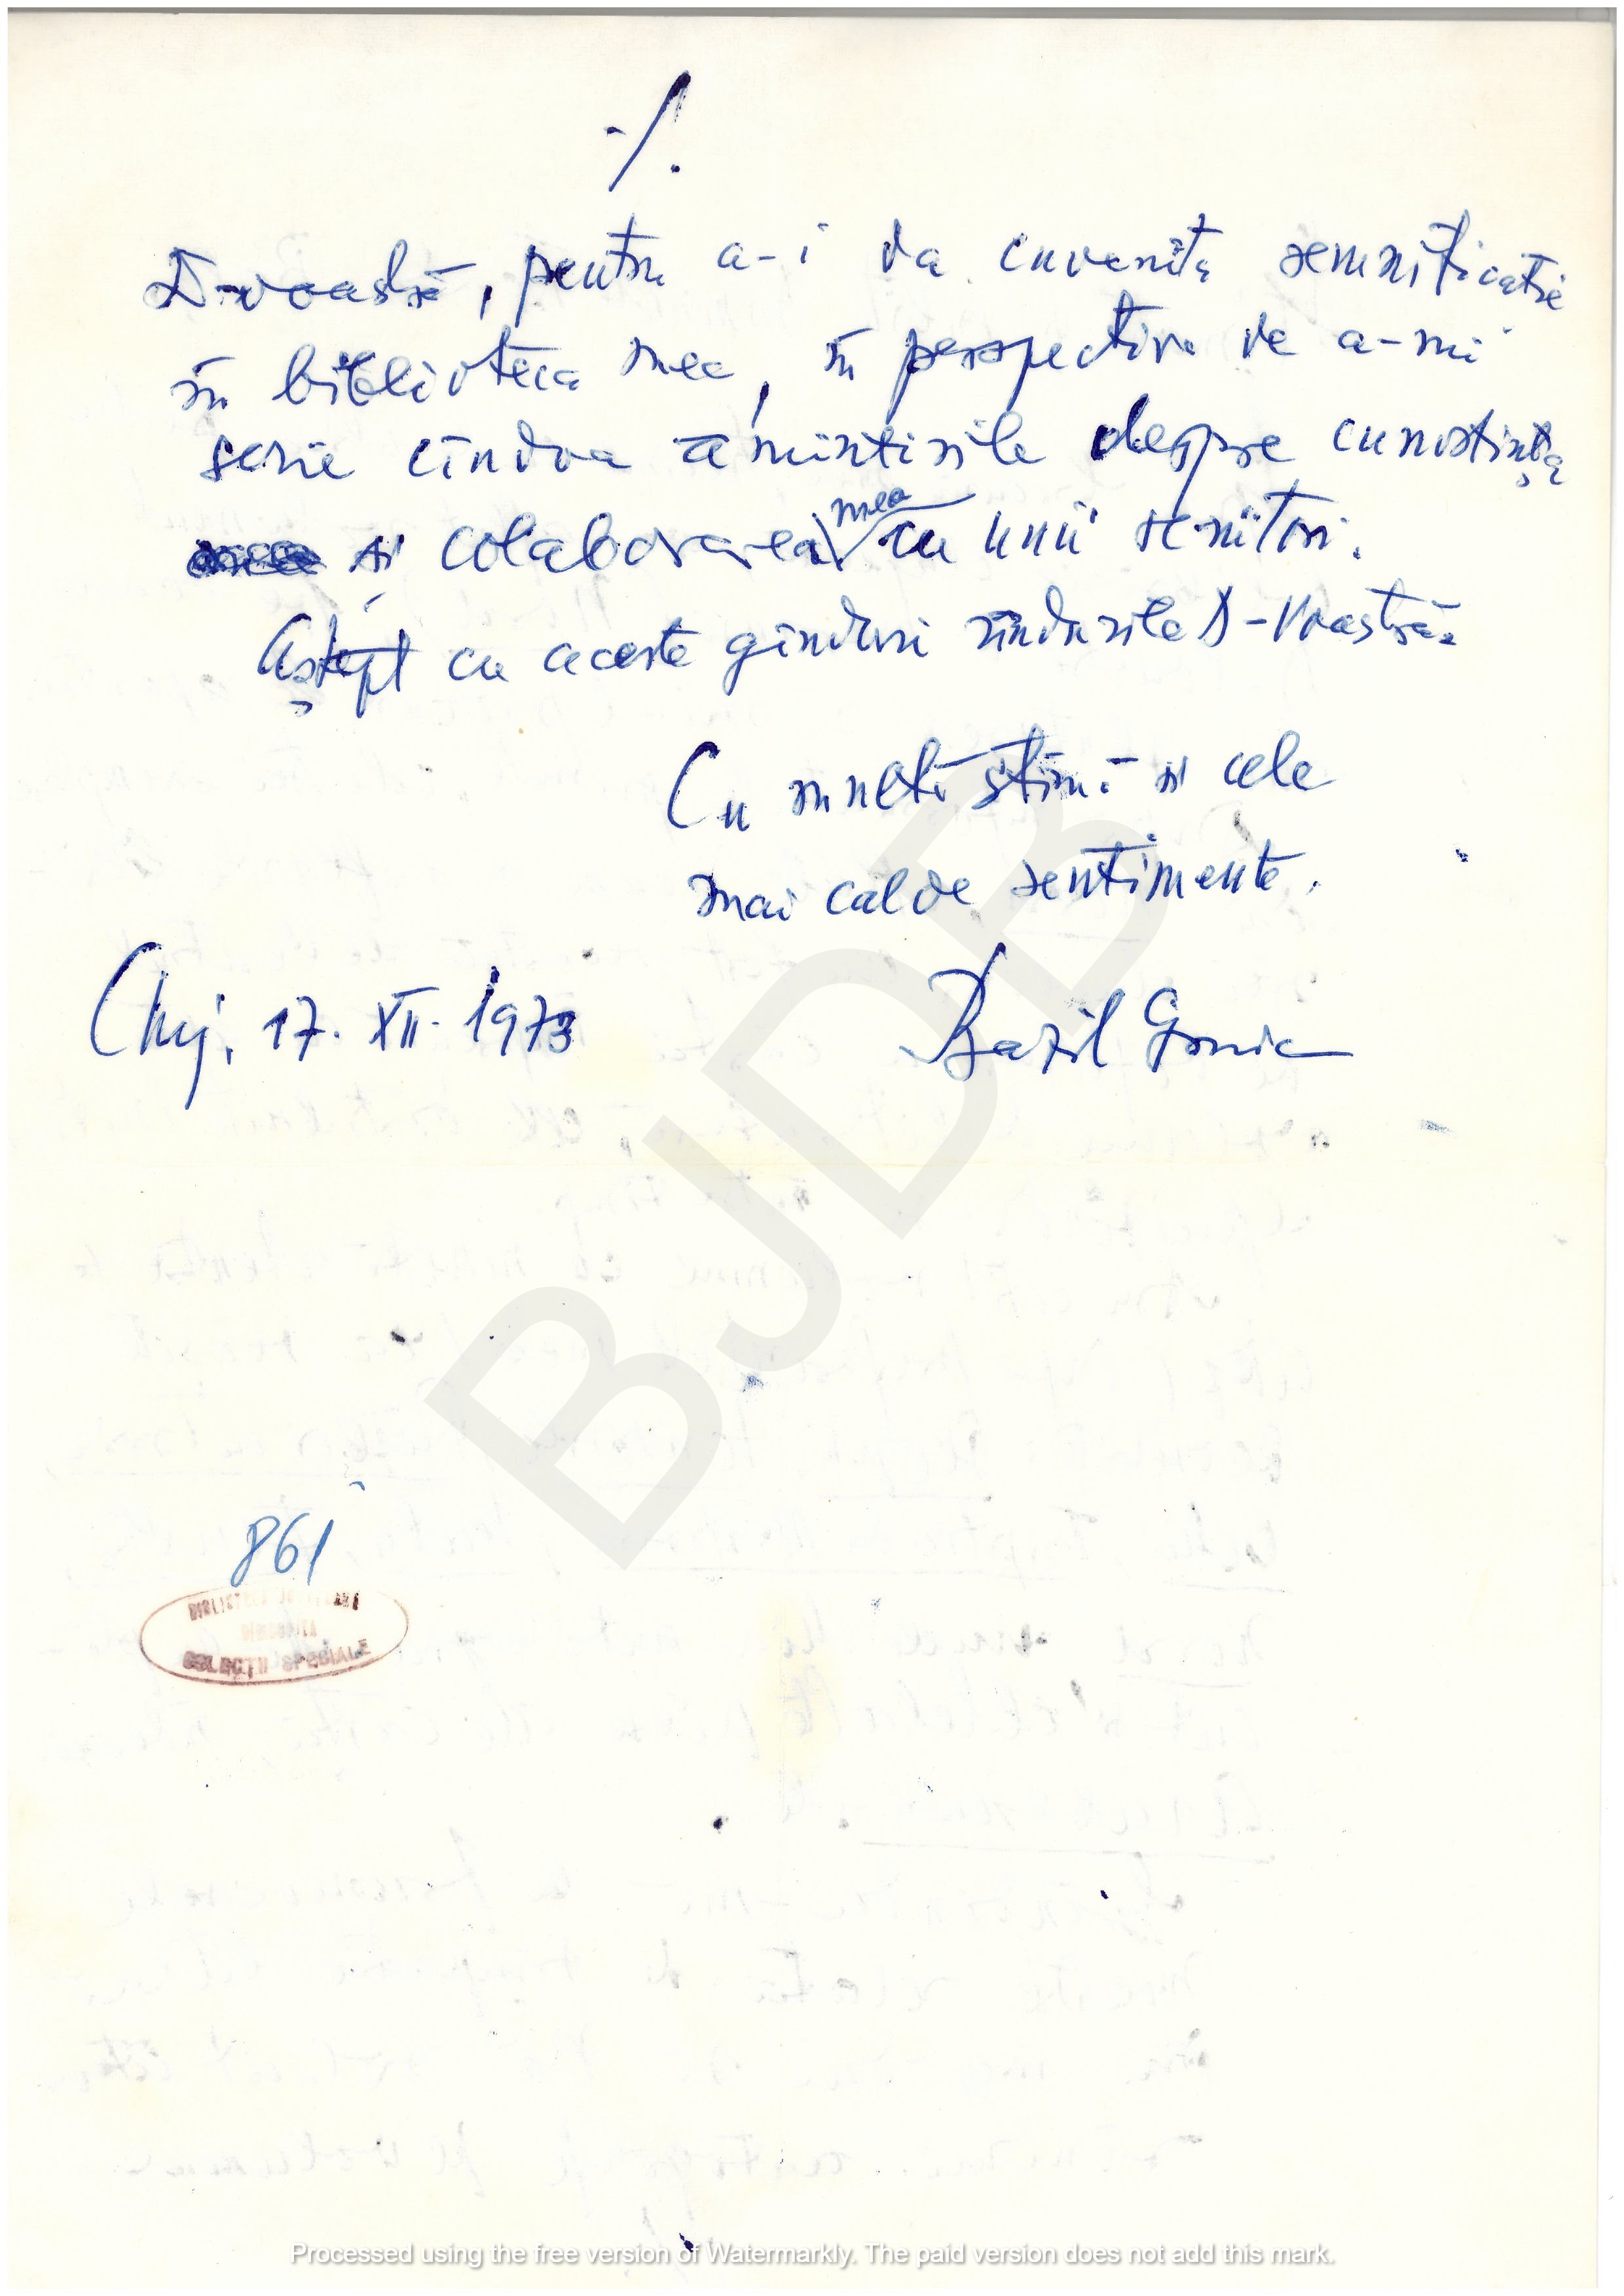 ·/.
D-voastră, pentru a-i da cuvenita semnificație
în biblioteca mea, în perspectiva de a-mi
scrie cîndva amintirile despre cunoștința
și colaborarea mea cu unii scriitori.
Aștept cu aceste gînduri rîndurile D-Voastră.
Cu multă stimă și cele
mai calde sentimente.
Cluj, 17. XII. 1973
Bazil Gruia
861
COLECȚII SPECIALE
BJDB
Processed using the free version of Watermarkly. The paid version does not add this mark.